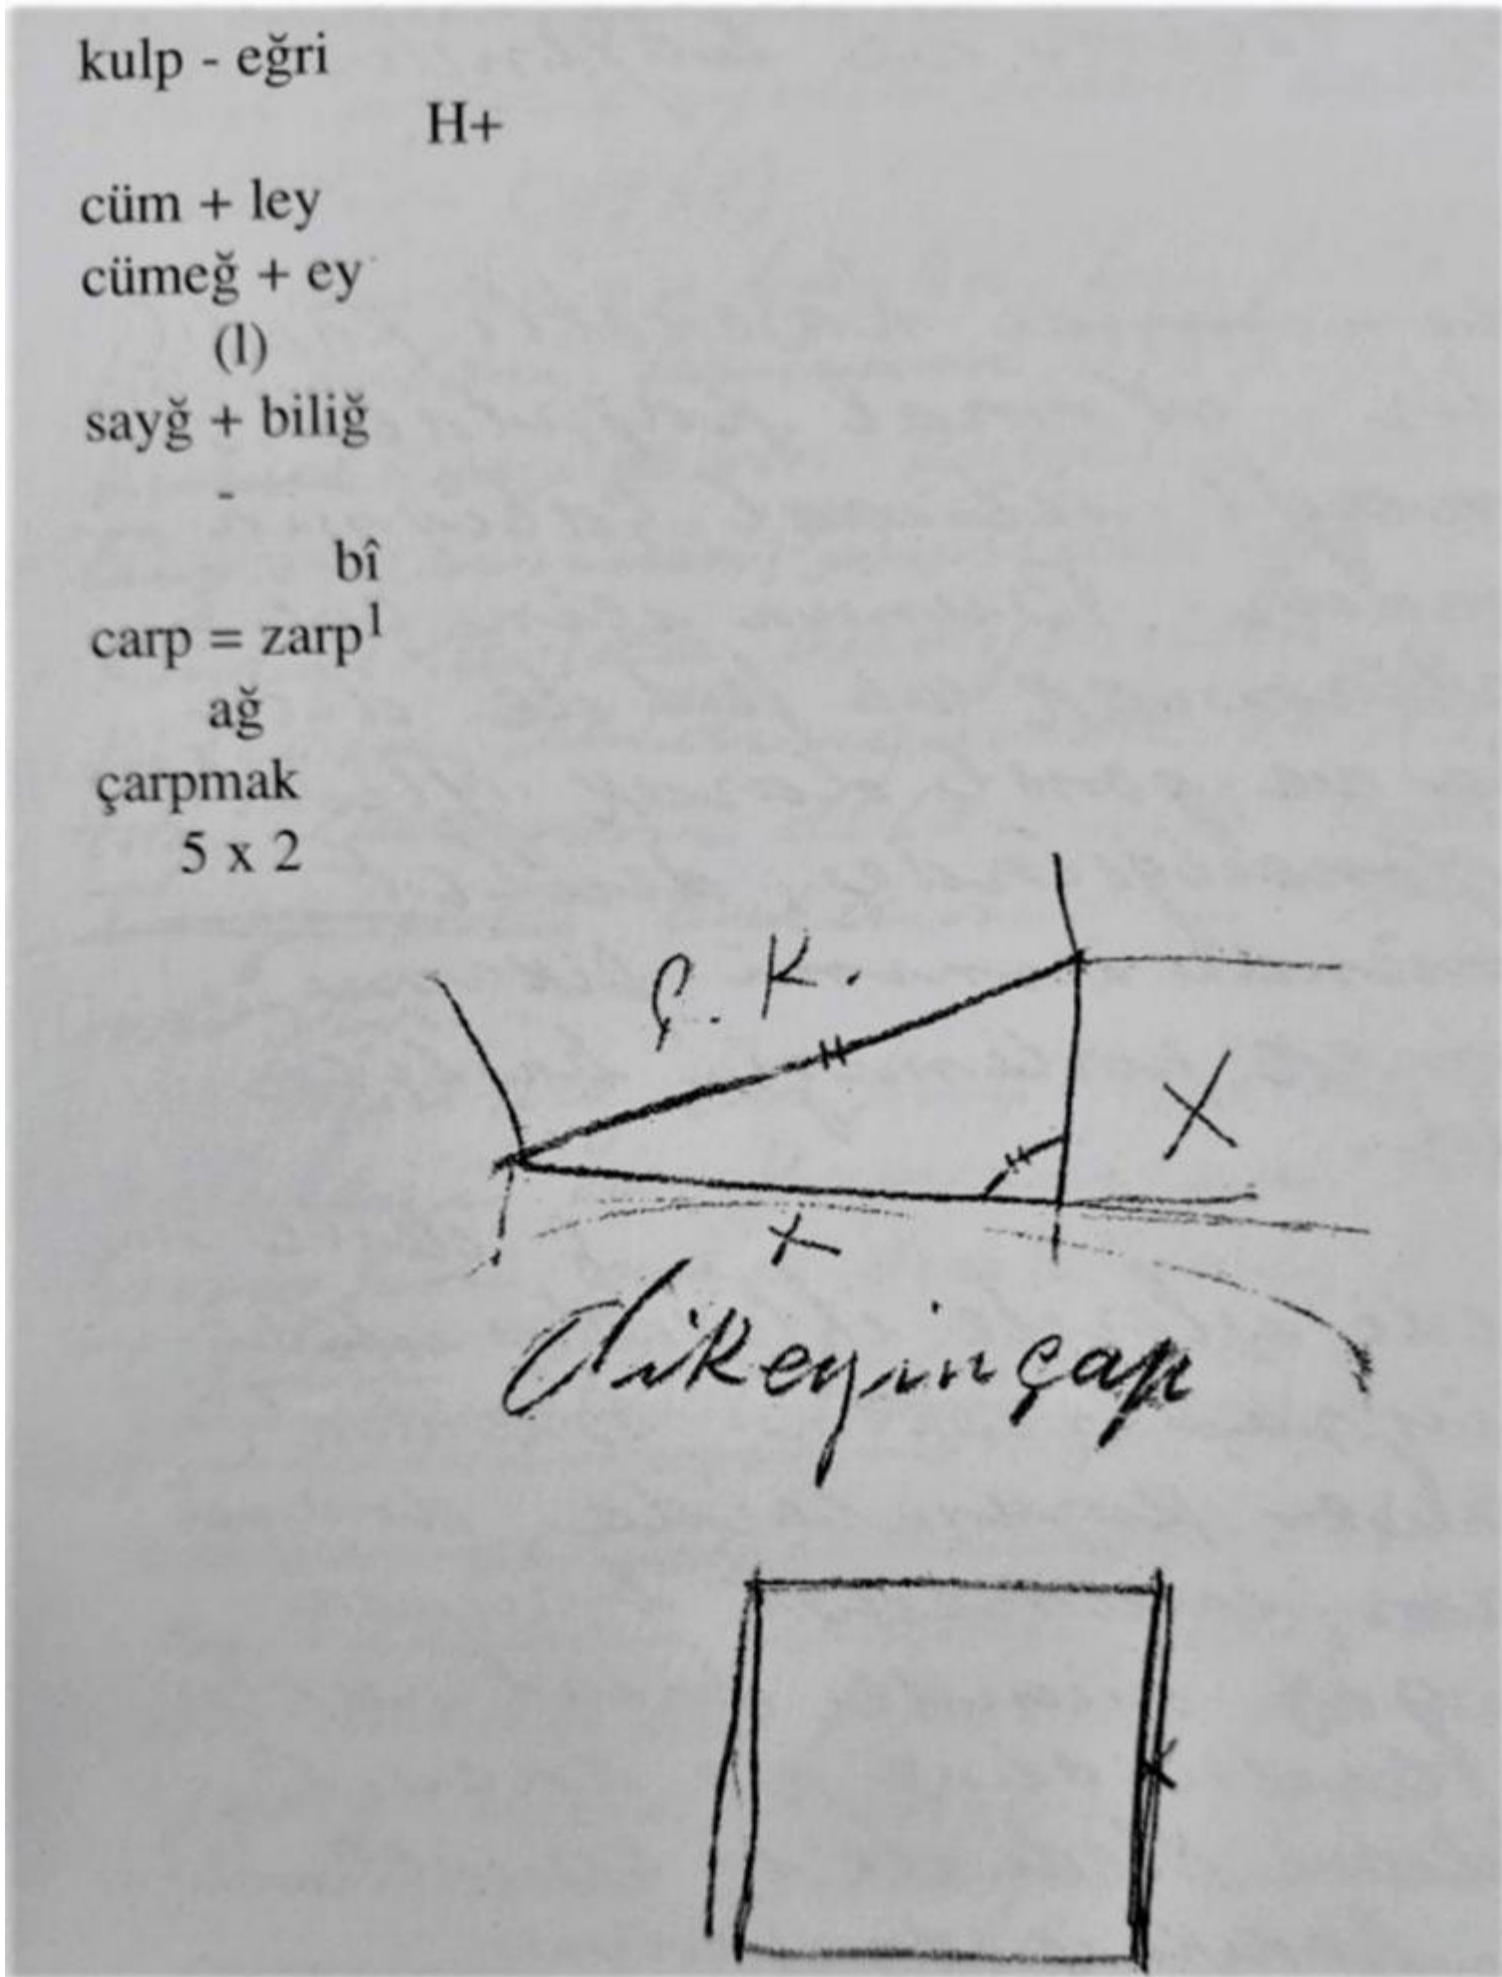 kulp - eğri
H+
cüm + ley
cümeğ + ey
(l)
sayğ + biliğ
-
bî
carp = zarp¹
ağ
çarpmak
5 x 2
Ç. K.
X
x
dikeyinçap
x